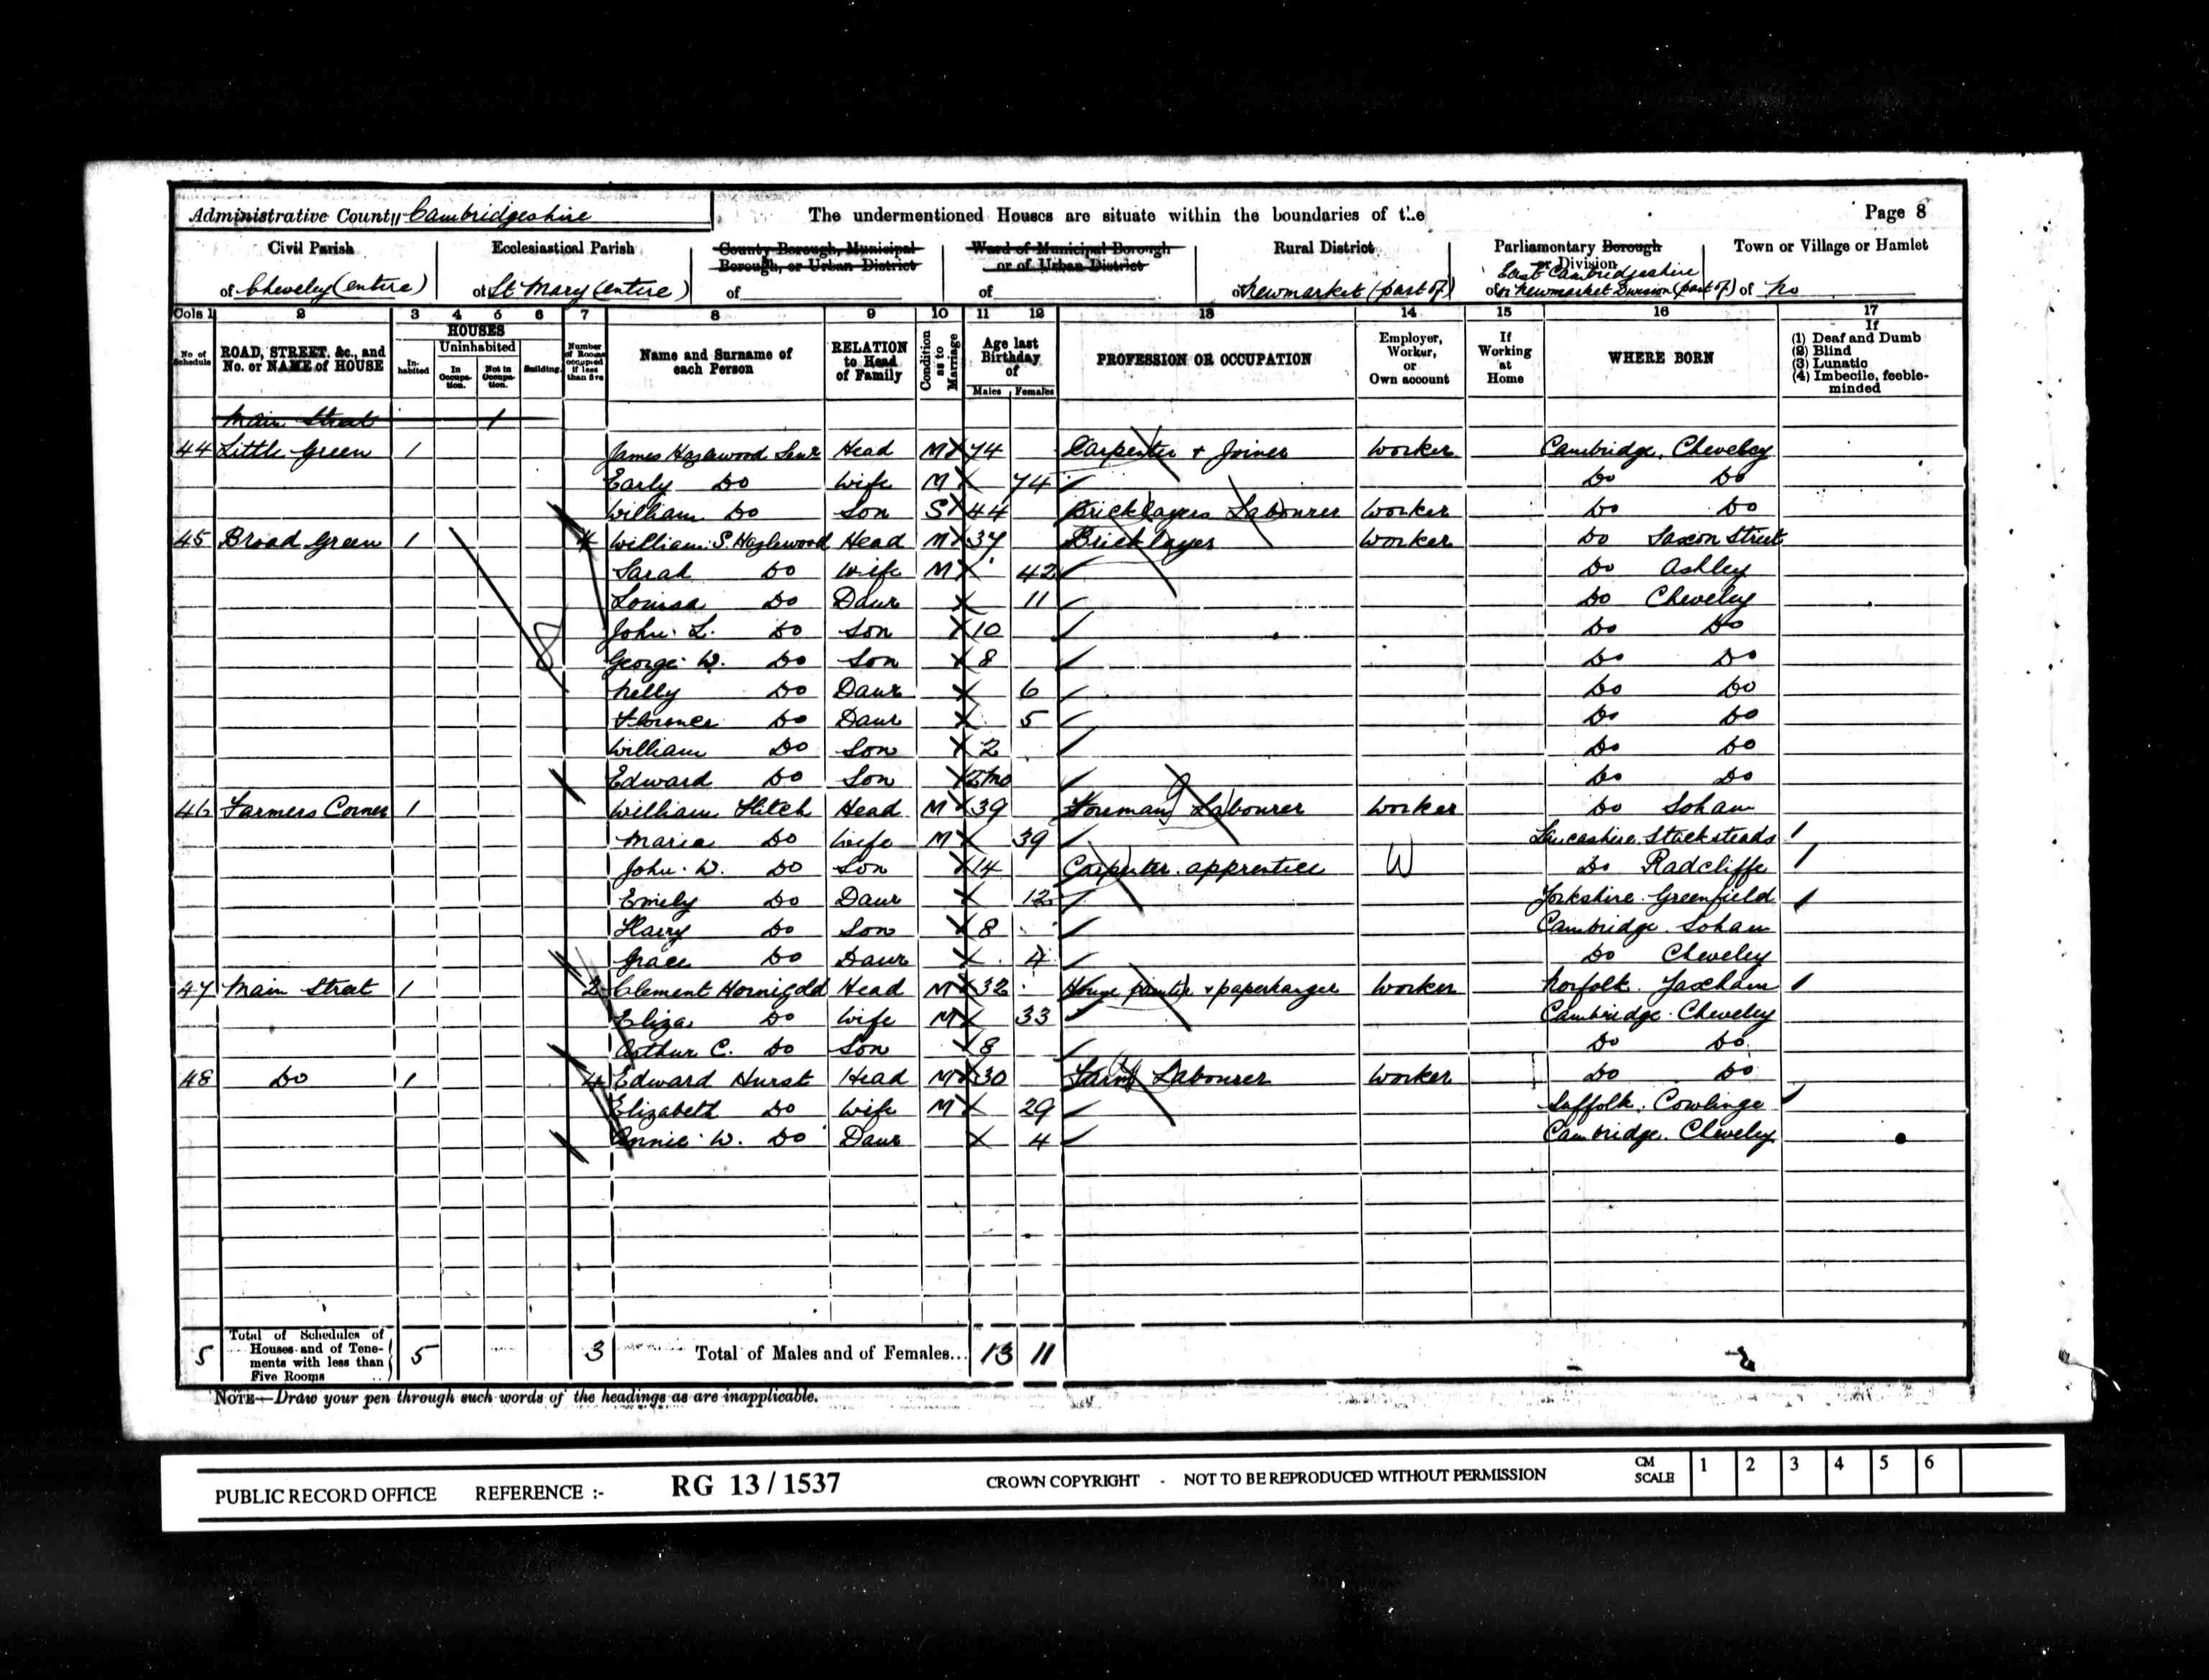 Administrative County Cambridgeshire The undermentioned Houses are situate within the boundaries of the Page 8
Civil Parish Ecclesiastical Parish County Borough, Municipal Borough, or Urban District Ward of Municipal Borough or of Urban District Rural District Parliamentary Borough or Division Town or Village or Hamlet
of Cheveley (entire) of St Mary (entire) of of of Newmarket (part of) East Cambridgeshire of or Newmarket Division (part of) of No
Cols 1 2 3 4 5 6 7 8 9 10 11 12 13 14 15 16 17
No of Schedule ROAD, STREET, &c., and No. or NAME of HOUSE HOUSES In-habited Uninhabited In Occupa-tion. Not in Occupa-tion. Building. Number of Rooms occupied if less than five Name and Surname of each Person RELATION to Head of Family Condition as to Marriage Age last Birthday of Males Females PROFESSION OR OCCUPATION Employer, Worker, or Own account If Working at Home WHERE BORN If (1) Deaf and Dumb (2) Blind (3) Lunatic (4) Imbecile, feeble-minded
Main Street 1
44 Little Green 1 James Hazlewood Senr Head M 74 Carpenter & Joiner Worker Cambridge. Cheveley
Early Do Wife M 74 Do Do
William Do Son S 44 Bricklayers Labourer Worker Do Do
45 Broad Green 1 4 William S Hazlewood Head M 37 Bricklayer Worker Do Saxon Street
Sarah Do Wife M 42 Do Ashley
Louisa Do Daur 11 Do Cheveley
John L. Do Son 10 Do Do
George W. Do Son 8 Do Do
Nelly Do Daur 6 Do Do
Florence Do Daur 5 Do Do
William Do Son 2 Do Do
Edward Do Son 2 mo Do Do
46 Farmers Corner 1 William Hitch Head M 39 Foreman Labourer Worker Do Soham
Maria Do Wife M 39 Lancashire. Stacksteads
John W. Do Son 14 Carpenter apprentice W Do Radcliffe
Emily Do Daur 12 Yorkshire Greenfield
Harry Do Son 8 Cambridge. Soham
Grace Do Daur 4 Do Cheveley
47 Main Street 1 2 Clement Hornigold Head M 32 House painter & paperhanger Worker Norfolk. Yaxham
Eliza Do Wife M 33 Cambridge. Cheveley
Arthur C. Do Son 8 Do Do
48 Do 1 4 Edward Hurst Head M 30 Farm Labourer Worker Do Do
Elizabeth Do Wife M 29 Suffolk. Cowlinge
Annie W. Do Daur 4 Cambridge. Cheveley
5 Total of Schedules of Houses and of Tene-ments with less than Five Rooms 5 3 Total of Males and of Females... 13 11
NOTE—Draw your pen through such words of the headings as are inapplicable.
PUBLIC RECORD OFFICE REFERENCE :- RG 13 / 1537 CROWN COPYRIGHT - NOT TO BE REPRODUCED WITHOUT PERMISSION CM SCALE 1 2 3 4 5 6